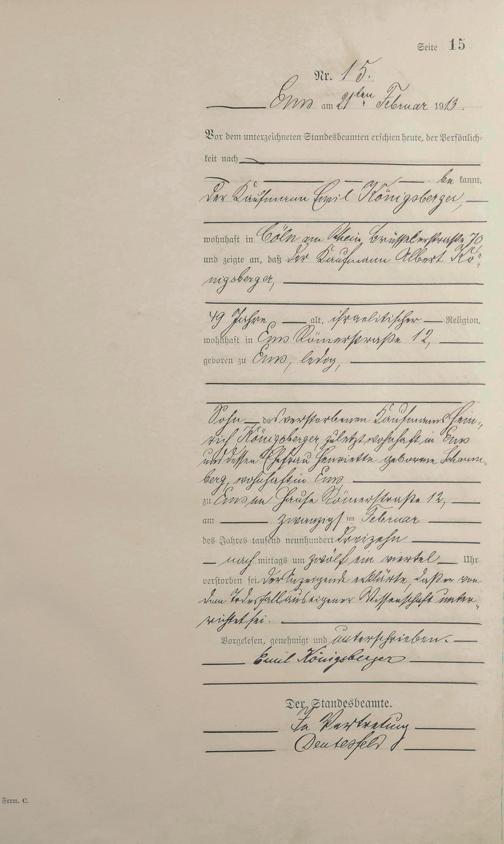 Seite 15
Nr. 15.
Ems am 21ten Februar 1913.
Vor dem unterzeichneten Standesbeamten erschien heute, der Persönlich-
keit nach
be kannt,
der Kaufmann Emil Königsberger,
wohnhaft in Cöln am Rhein, Brüsselerstraße 70
und zeigte an, daß der Kaufmann Albert Kö-
nigsberger,
49 Jahre alt, israelitischer Religion,
wohnhaft in Ems Römerstraße 12,
geboren zu Ems, ledig,
Sohn des verstorbenen Kaufmanns Hein-
rich Königsberger, zuletzt wohnhaft in Ems
und dessen Ehefrau Henriette geborene
berg, wohnhaft in Ems
zu Ems im Hause Römerstraße 12,
am zwanzigsten Februar
des Jahres tausend neunhundert dreizehn
nach mittags um zwölf ein viertel Uhr
verstorben sei. Der Anzeigende erklärte, daß er von
dem Todesfall aus eigener Wissenschaft unter-
richtet sei.
Vorgelesen, genehmigt und unterschrieben.
Emil Königsberger
Der Standesbeamte.
In Vertretung
Form. C.